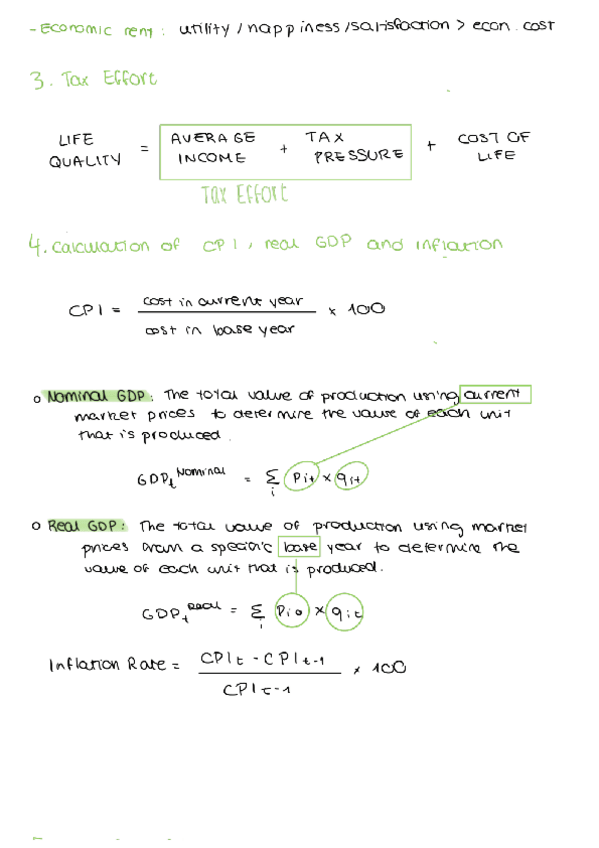 - Economic rent: utility/happiness/satisfaction > econ. cost
3. Tax Effort
LIFE QUALITY = AVERAGE INCOME + TAX PRESSURE + COST OF LIFE
TAX EFFORT
4. Calculation of CPI, real GDP and inflation
CPI = cost in current year / cost in base year x 100
o Nominal GDP: The total value of production using current
market prices to determine the value of each unit
that is produced.
GDPt Nominal = Σi Pit x qit
o Real GDP: The total value of production using market
prices from a specific base year to determine the
value of each unit that is produced.
GDPt Real = Σi Pio x qit
Inflation Rate = CPIt - CPIt-1 / CPIt-1 x 100